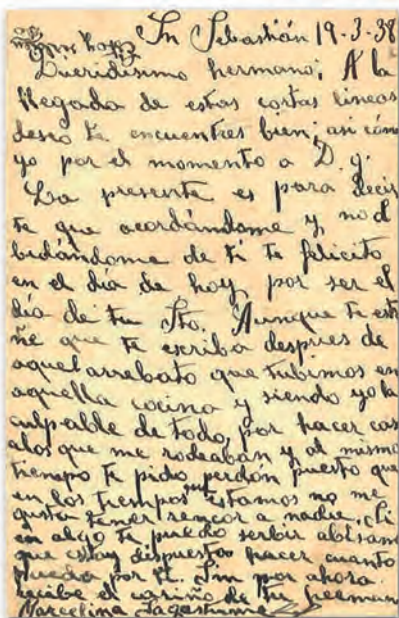 Sn Sebastián 19-3-38
Queridisimo hermano; A la
llegada de estas cortas lineas
deseo te encuentres bien; asi cómo
yo por el momento a D. g.
La presente es para decir
te que acordándome y no ol
bidándome de tí te felicito
en el día de hoy, por ser el
día de tu Sto. Aunque te estr
ñe que te escriba despues de
aquel arrebato que tubimos en
aquella cocina y siendo yo la
culpable de todo, por hacer cas
a los que me rodeaban y, al mismo
tiempo te pido perdón puesto que
en los tiempos que estamos no me
gusta tener rencor a nadie. Si
en algo te puedo serbir abisam
que estoy dispuesta hacer cuanto
pueda por tí. Sin por ahora
recibe el cariño de tu herman
Marcelina